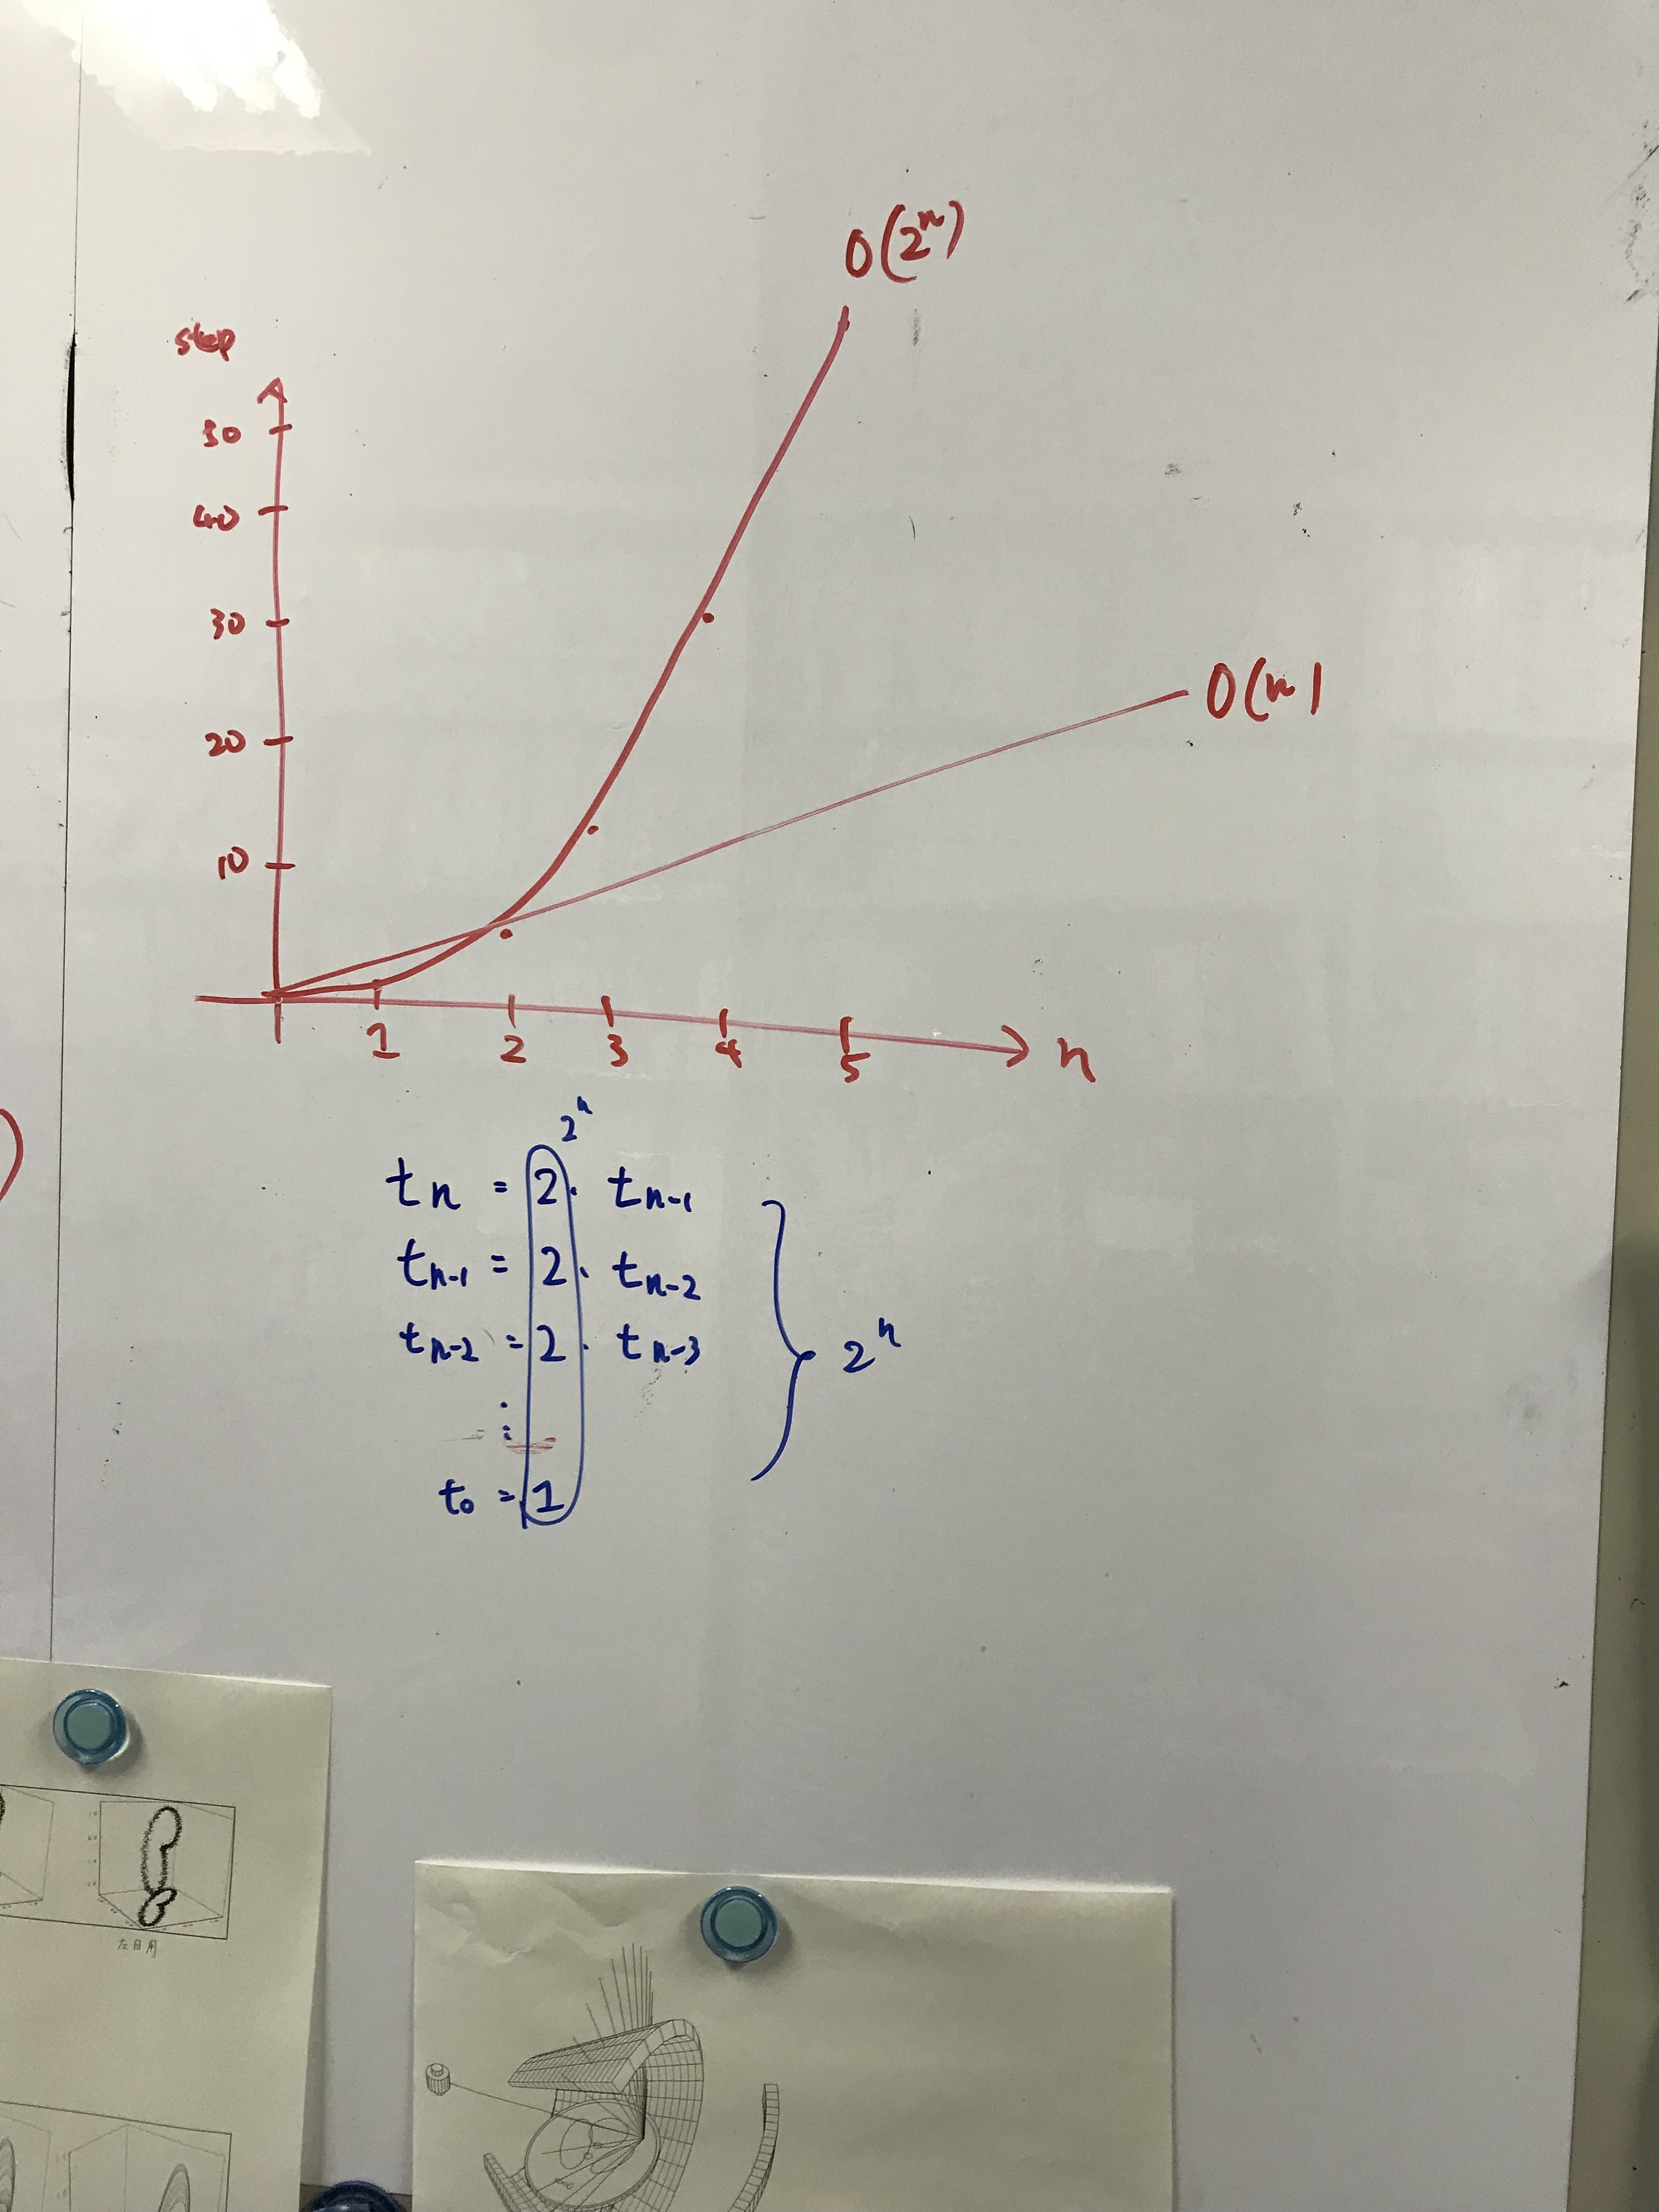 O(2ⁿ)
step
50
40
30
20
10
O(n)
1 2 3 4 5 n
2ⁿ
tₙ = 2 · tₙ₋₁
tₙ₋₁ = 2 · tₙ₋₂
tₙ₋₂ = 2 · tₙ₋₃
2ⁿ
⋮
t₀ = 1